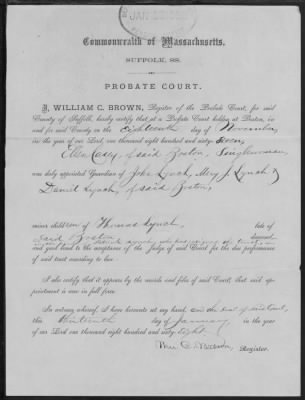 JAN 22
Commonwealth of Massachusetts.
SUFFOLK, SS.
PROBATE COURT.
I, WILLIAM C. BROWN, Register of the Probate Court, for said
County of Suffolk, hereby certify that at a Probate Court holden at Boston, in
and for said County on the Eighteenth day of November
in the year of our Lord, one thousand eight hundred and sixty Seven,
Ellen Casey, of said Boston, Singlewoman,
was duly appointed Guardian of John Lynch, Mary J. Lynch &
Daniel Lynch, of said Boston,
minor children of Thomas Lynch, late of
said Boston deceased,
and gave bond to the acceptance of the Judge of said Court for the due performance
of said trust according to law.
I also certify that it appears by the records and files of said Court, that said ap-
pointment is now in full force.
In testimony whereof, I have hereunto set my hand, and the seal of said Court,
this Thirteenth day of January in the year
of our Lord one thousand eight hundred and sixty eight
Wm. C. Brown, Register.